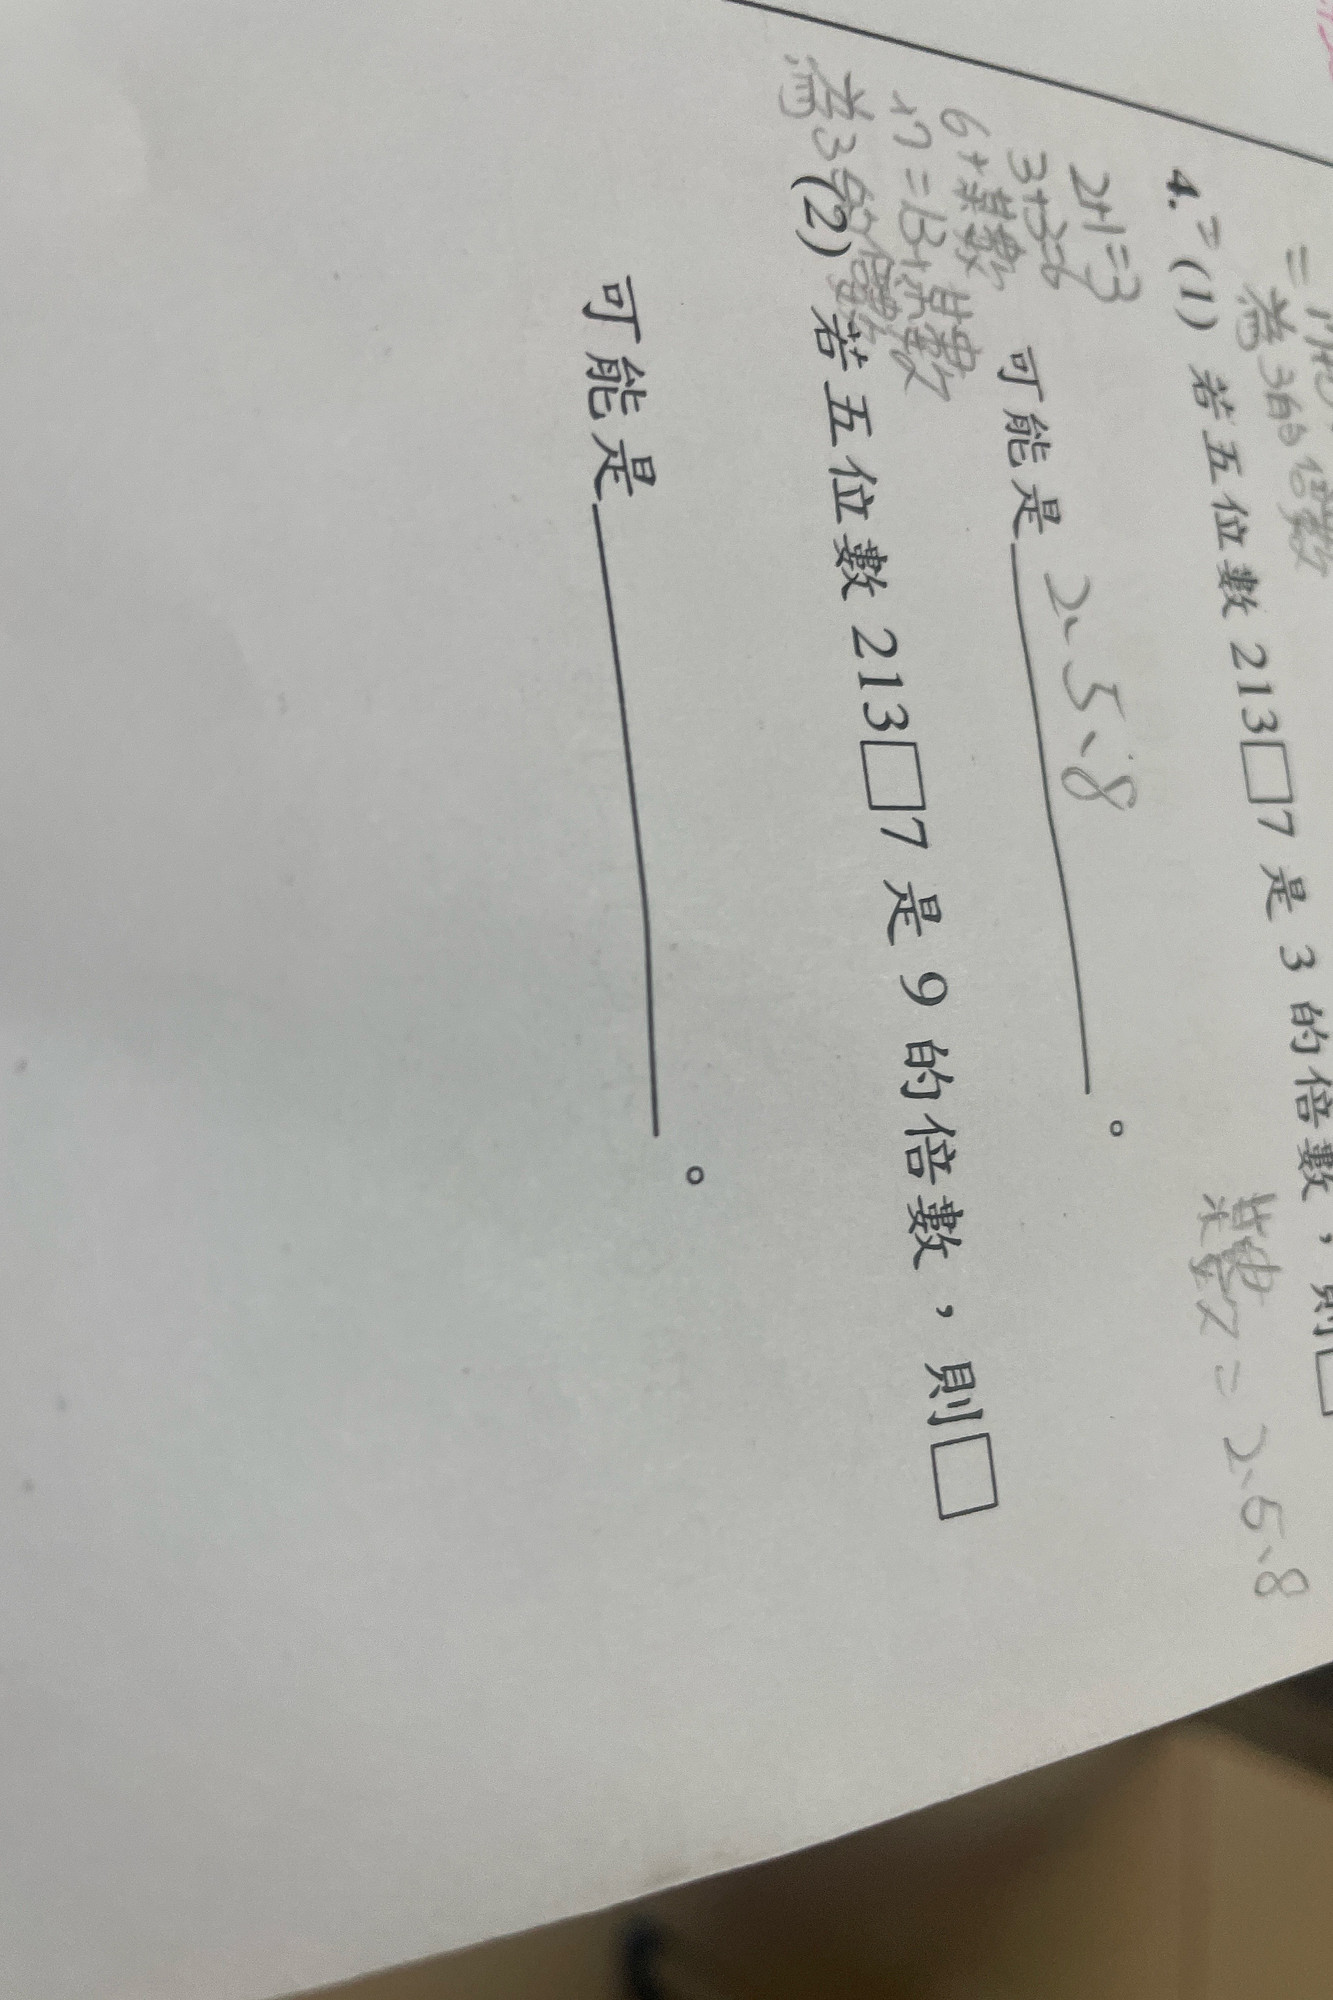 為3的倍數
4. (1) 若五位數213□7是3的倍數,則□
某數=2、5、8
2+1=3
3+3=6
可能是2、5、8。
6+某數
+7=13+某數
為3的倍數
(2) 若五位數213□7是9的倍數,則□
可能是。